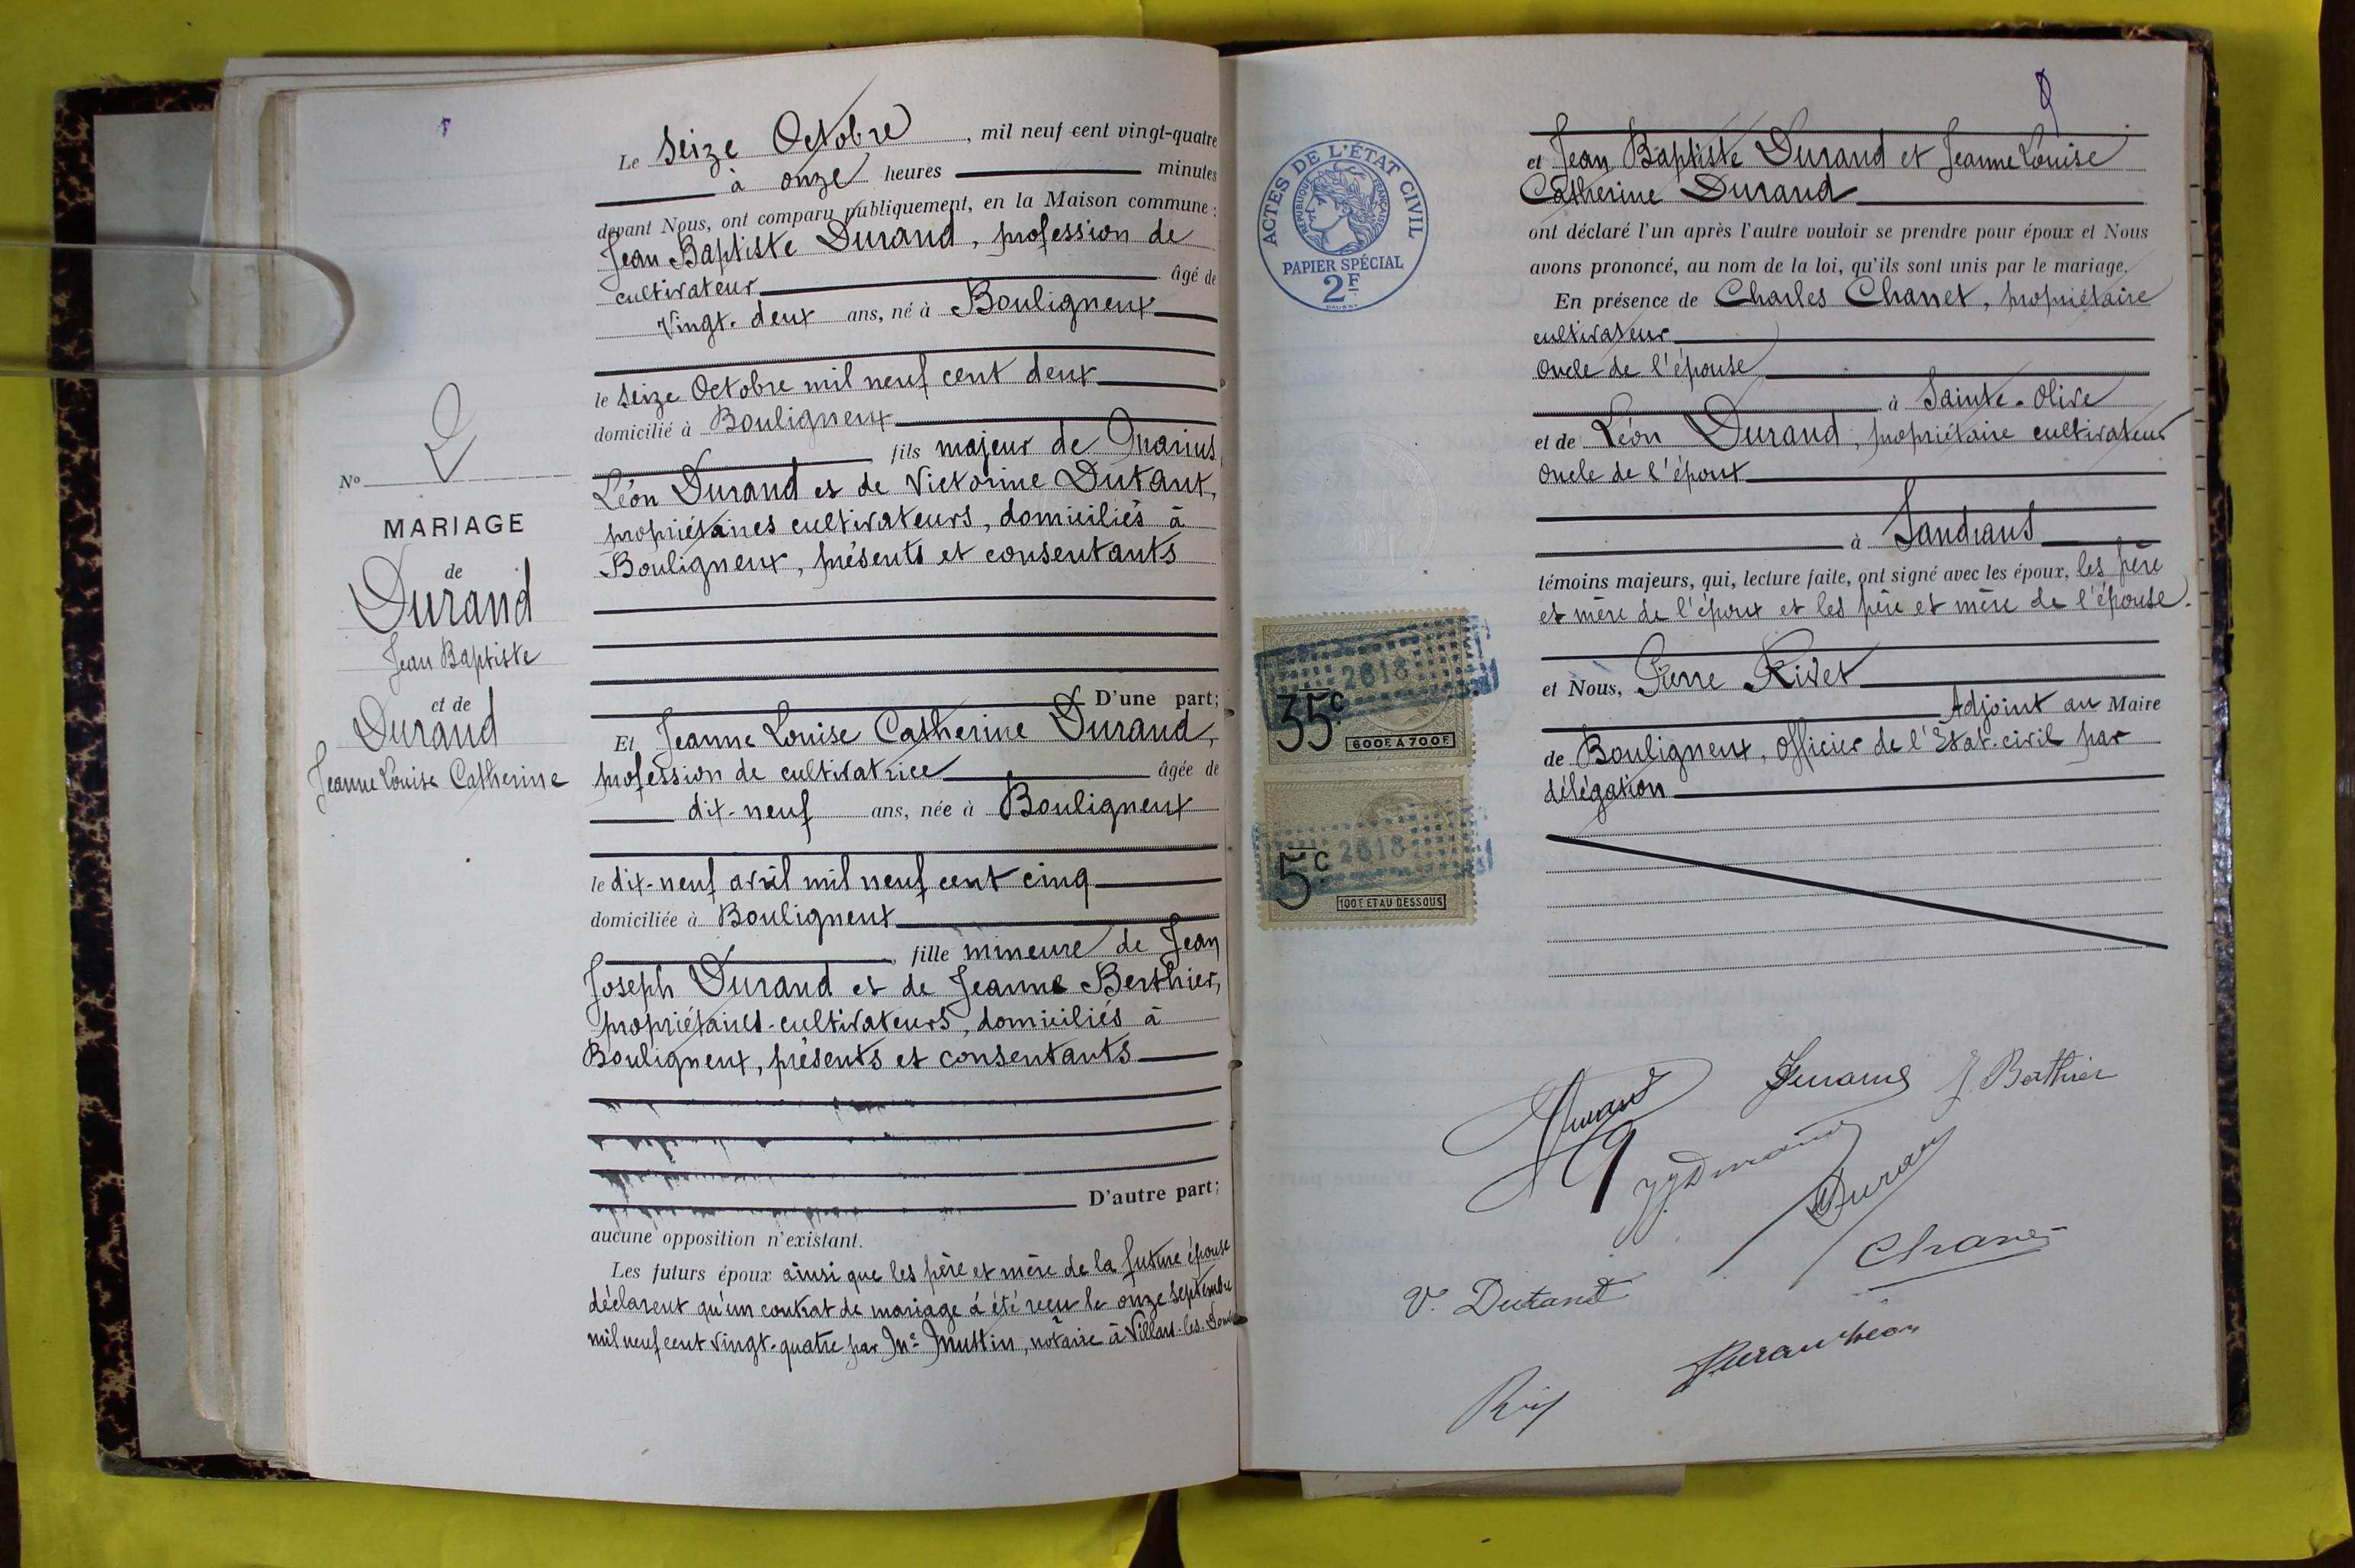 Le seize Octobre, mil neuf cent vingt-quatre
à onze heures minutes
devant Nous, ont comparu publiquement, en la Maison commune :
Jean Baptiste Durand, profession de
cultivateur âgé de
vingt-deux ans, né à Bouligneux
le seize Octobre mil neuf cent deux
domicilié à Bouligneux
fils majeur de Marius
Léon Durand et de Victorine Dutant,
propriétaires cultivateurs, domiciliés à
Bouligneux, présents et consentants
D'une part;
Et Jeanne Louise Catherine Durand,
profession de cultivatrice âgée de
dix-neuf ans, née à Bouligneux
le dix-neuf avril mil neuf cent cinq
domiciliée à Bouligneux
fille mineure de Jean
Joseph Durand et de Jeanne Berthier,
propriétaires-cultivateurs, domiciliés à
Bouligneux, présents et consentants
D'autre part;
aucune opposition n'existant.
Les futurs époux ainsi que les père et mère de la future épouse
déclarent qu'un contrat de mariage a été reçu le onze septembre
mil neuf cent vingt-quatre par Me Mustin, notaire à Villars-les-Dombes
No
MARIAGE
de
Durand
Jean Baptiste
et de
Durand
Jeanne Louise Catherine
ACTES DE L'ÉTAT CIVIL
RÉPUBLIQUE FRANÇAISE
PAPIER SPÉCIAL
2F
2618
35c
600F À 700F
2618
5c
100F ET AU DESSOUS
et Jean Baptiste Durand et Jeanne Louise
Catherine Durand
ont déclaré l'un après l'autre vouloir se prendre pour époux et Nous
avons prononcé, au nom de la loi, qu'ils sont unis par le mariage.
En présence de Charles Chanel, propriétaire
cultivateur
oncle de l'épouse
à Sainte-Olive
et de Léon Durand, propriétaire cultivateur
oncle de l'époux
à Sandrans
témoins majeurs, qui, lecture faite, ont signé avec les époux, les père
et mère de l'époux et les père et mère de l'épouse.
et Nous, Pierre Rivet
Adjoint au Maire
de Bouligneux, Officier de l'Etat-civil par
délégation
Durand
J. Berthier
JJ Durand
Durand
V. Dutant